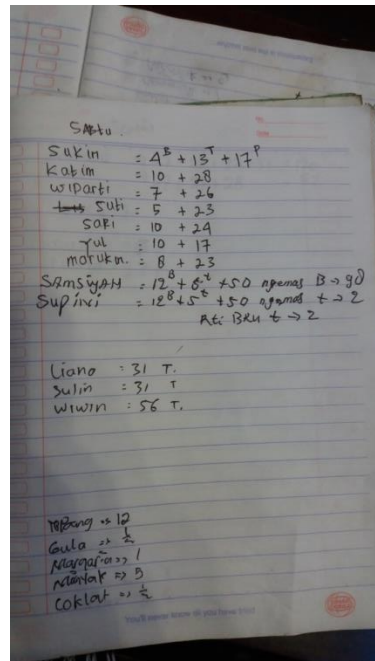 Sabtu
Sukin = 4^B + 13^T + 17^P
Katim = 10 + 28
Wiparti = 7 + 26
Suti = 5 + 23
Sari = 10 + 24
Yul = 10 + 17
Morukin = 8 + 23
SAMSIYAH = 12^B + 6^t + 50 ngemas B → 90
Supini = 12^B + 5^t + 50 ngemas t → 2
Rti BRU t → 2
Liano : 31 T.
Sulin : 31 T
Wiwin : 56 T.
12
Gula => ½
1
=> 5
Coklat => ½